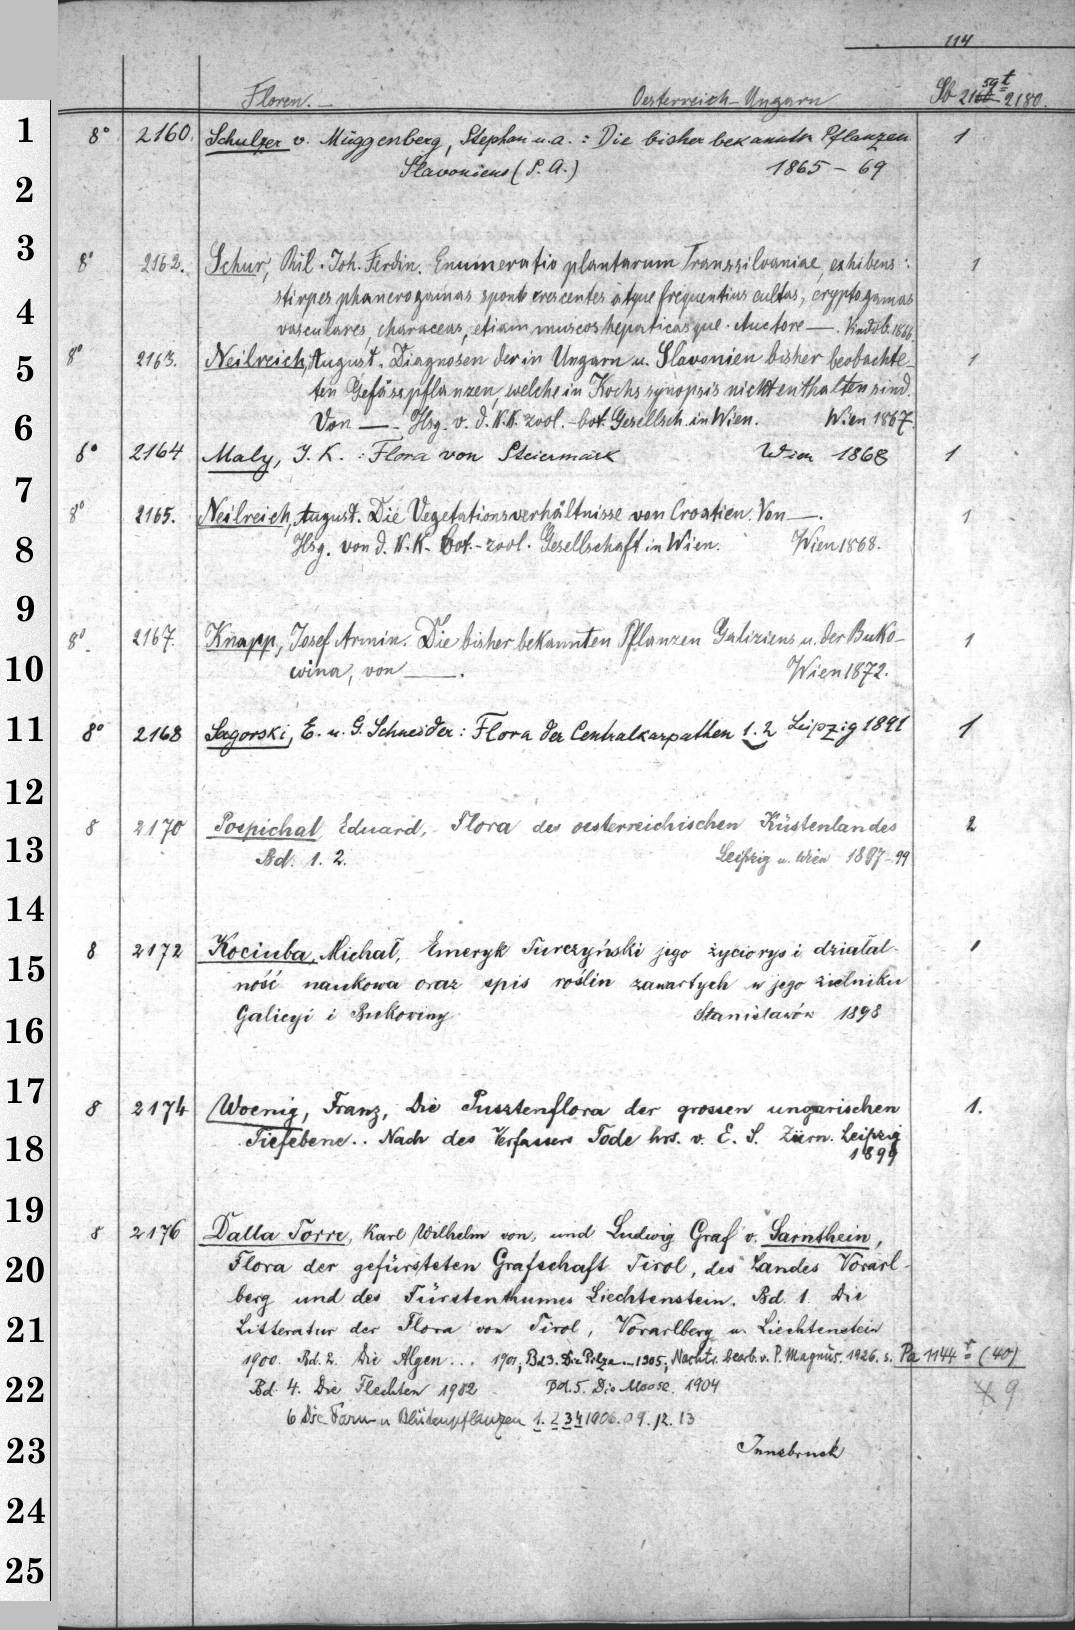 114
Floren. — Oesterreich-Ungarn Sb 2160 59t = 2180.
1 8° 2160. Schulzer v. Müggenberg, Stephan u.a. : Die bisher bekannten Pflanzen 1
2 Slavoniens (S. A.) 1865 – 69
3 8° 2162. Schur, Phil. Joh. Ferdin. Enumeratio plantarum Transsilvaniae, exhibens: 1
4 stirpes phanerogamas sponte crescentes atque frequentius cultas, cryptogamas
vasculares, characeas, etiam muscos hepaticasque. Auctore —. Vindob. 1866.
5 8° 2163. Neilreich, August. Diagnosen der in Ungarn u. Slavonien bisher beobachte- 1
ten Gefässpflanzen, welche in Kochs synopsis nicht enthalten sind.
6 Von —. Hsg. v. d. K.K. zool.-bot. Gesellsch. in Wien. Wien 1867.
8° 2164 Maly, J. K. : Flora von Steiermark Wien 1868 1
7
8° 2165. Neilreich, August. Die Vegetationsverhältnisse von Croatien. Von —. 1
8 Hsg. von d. K.K. bot.-zool. Gesellschaft in Wien. Wien 1868.
9
8°. 2167. Knapp, Josef Armin. Die bisher bekannten Pflanzen Galiziens u. der Buko- 1
10 wina, von —. Wien 1872.
11 8° 2168 Sagorski, E. u. G. Schneider: Flora der Centralkarpathen 1. 2 Leipzig 1891 1
12
8 2170 Pospichal, Eduard, Flora des oesterreichischen Küstenlandes 2
13 Bd. 1. 2. Leipzig u. Wien 1897–99
14
8 2172 Kociuba, Michał, Emeryk Turczyński jego życiorys i działal- 1
15 ność naukowa oraz spis roślin zawartych w jego zielniku
16 Galicyi i Bukowiny Stanisławów 1898
17 8 2174 Woenig, Franz, Die Pusztenflora der grossen ungarischen 1.
18 Tiefebene.. Nach des Verfassers Tode hrs. v. E. S. Zürn. Leipzig
1899
19 8 2176 Dalla Torre, Karl Wilhelm von, und Ludwig Graf v. Sarnthein,
20 Flora der gefürsteten Grafschaft Tirol, des Landes Vorarl-
berg und des Fürstenthumes Liechtenstein. Bd. 1. Die
21 Litteratur der Flora von Tirol, Vorarlberg u. Liechtenstein
1900. Bd. 2. Die Algen... 1901, Bd 3. Die Pilze... 1905; Nachtr. bearb. v. P. Magnus. 1926. s. Pa 1144 r = (40)
22 Bd. 4. Die Flechten 1902 Bd. 5. Die Moose. 1904 9
6 Die Farn- u Blütenpflanzen 1. 2 3 4 1906. 09. 12. 13
23 Innsbruck
24
25